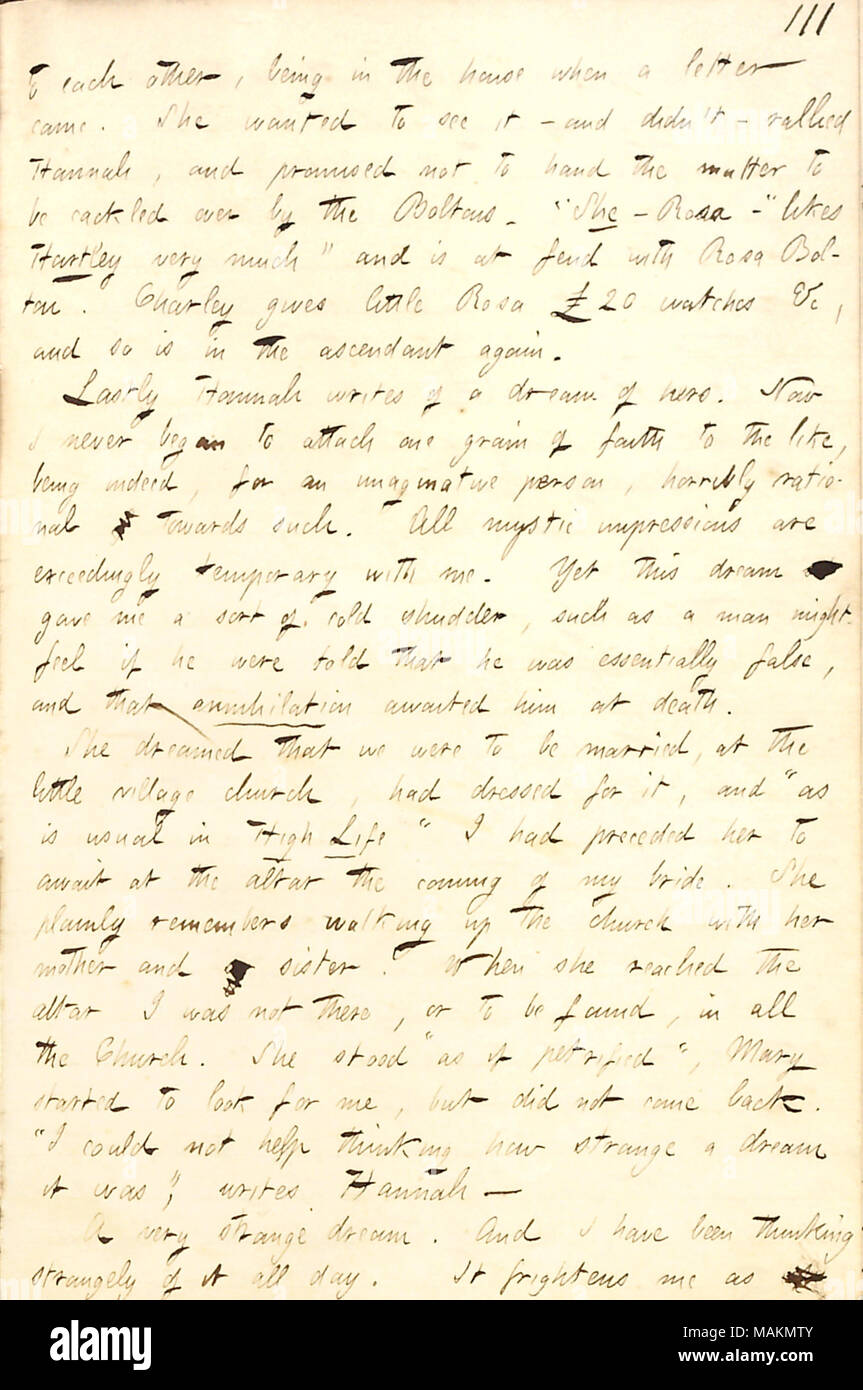 111
to each other, being in the house when a letter
came. She wanted to see it - and didn't - rallied
Hannah, and promised not to hand the matter to
be cackled over by the Boltons. "She - Rosa - "likes
Hartley very much" and is at feud with Rosa Bol-
ton. Charley gives little Rosa £20 watches &c,
and so is in the ascendant again.
Lastly Hannah writes of a dream of hers. Now
I never began to attach one grain of faith to the like,
being indeed, for an imaginative person, horribly ratio-
nal towards such. All mystic impressions are
exceedingly temporary with me. Yet this dream
gave me a sort of cold shudder, such as a man might
feel if he were told that he was essentially false,
and that annihilation awaited him at death.
She dreamed that we were to be married, at the
little village church, had dressed for it, and "as
is usual in High Life" I had preceded her to
await at the altar the coming of my bride. She
plainly remembers walking up the church with her
mother and sister. When she reached the
altar I was not there, or to be found, in all
the Church. She stood "as if petrified", Mary
started to look for me, but did not come back.
"I could not help thinking how strange a dream
it was", writes Hannah —
A very strange dream. And I have been thinking
strangely of it all day. It frightens me as
alamy
Image ID: MAKMTY
www.alamy.com